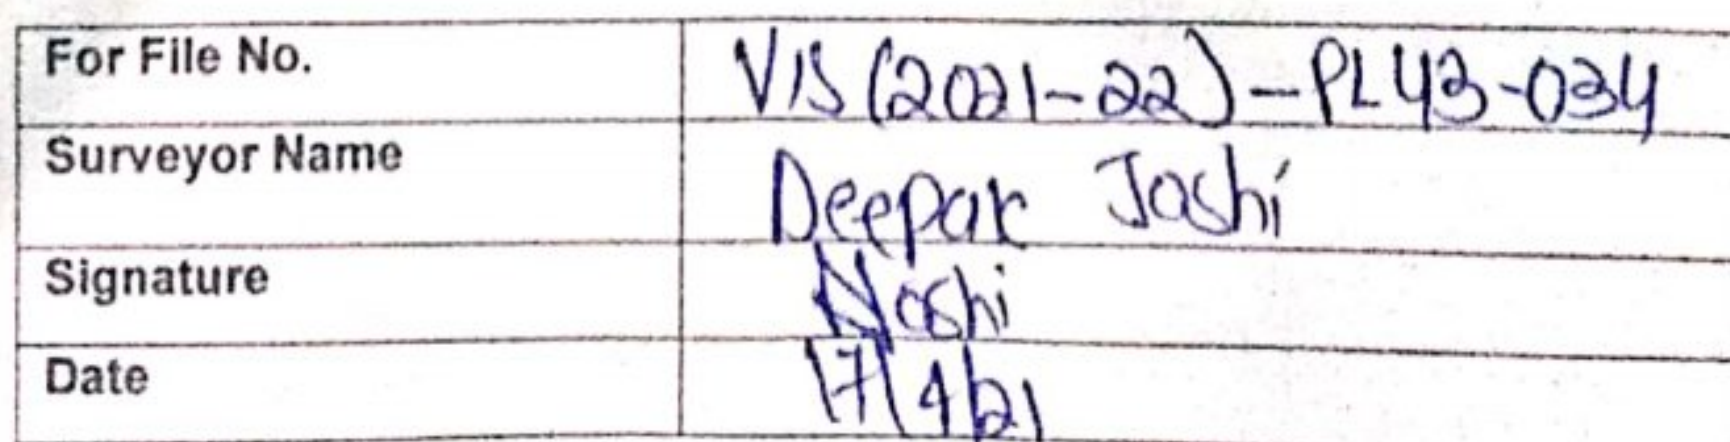 For File No. VIS(2021-22)-PL43-034
Surveyor Name Deepak Joshi
Signature DJoshi
Date 17/4/21